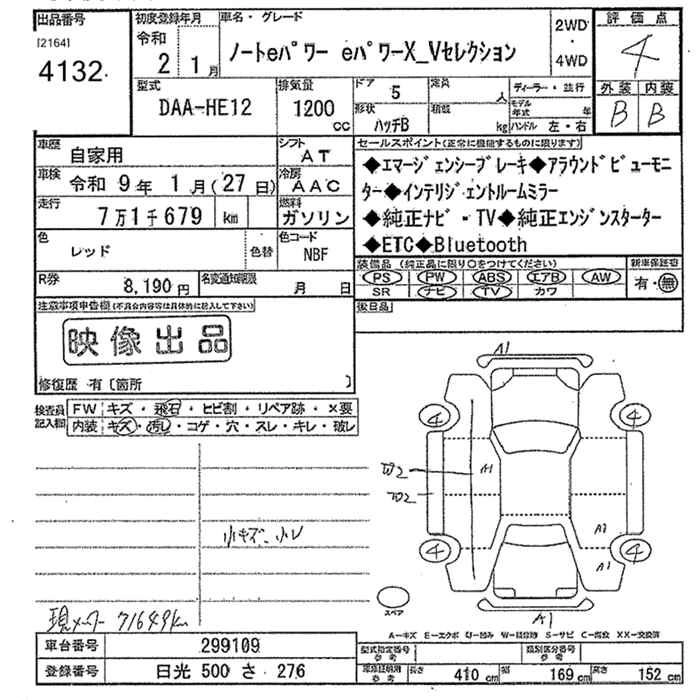 出品番号
[2164]
4132
初度登録年月
令和
2 1月
車名・グレード
ノートeパワー eパワーX_Vセレクション
2WD
・
4WD
評価点
4
外装 内装
B B
型式
DAA-HE12
排気量
1200
cc
ドア 5
定員 人
形状 ハッチB
積載 kg
ディーラー・並行
モデル年式 年
ハンドル 左・右
車歴 自家用
シフト AT
車検 令和 9年 1月(27日)
冷房 AAC
走行 7万1千679 km
燃料 ガソリン
色 レッド
色替
色コード NBF
R券 8,190円
名変通知期限 月 日
セールスポイント(正常に機能するものに限ります)
◆エマージェンシーブレーキ◆アラウンドビューモニ
ター◆インテリジェントルームミラー
◆純正ナビ・TV◆純正エンジンスターター
◆ETC◆Bluetooth
装備品(純正品に限り○をつけてください)
PS PW ABS エアB AW
SR ナビ TV カワ
新車保証書
有・無
後日品
注意事項申告欄(不具合内容等は具体的に記入して下さい)
映像出品
修復歴 有〔箇所 〕
検査員記入欄
FW キズ・飛石・ヒビ割・リペア跡・×要
内装 キズ・汚レ・コゲ・穴・スレ・キレ・破レ
小キズ、小レ
現メーター 71649km
A1
4 4
A1
A1
A1
4 4
A1
スペア
A-キズ E-エクボ U-凹み W-補修跡 S-サビ C-腐食 XX-交換済
車台番号 299109
登録番号 日光 500 さ 276
型式指定番号 参考
類別区分番号 参考
車庫証明用 参考 長さ 410cm 幅 169cm 高さ 152cm